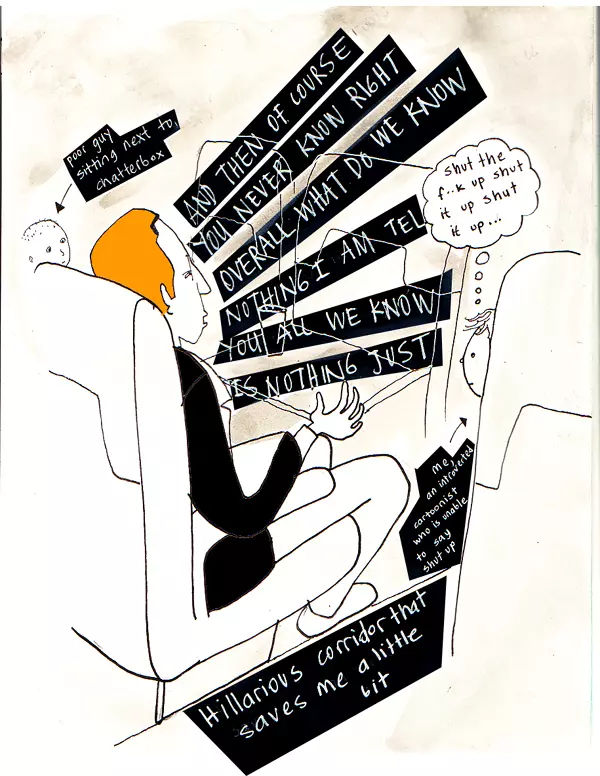 AND THEN OF COURSE
YOU NEVER KNOW RIGHT
OVERALL WHAT DO WE KNOW
NOTHING I AM TEL
YOU ALL WE KNOW
IS NOTHING JUST
poor guy
sitting next to
chatterbox
shut the
f..k up shut
it up shut
it up...
me,
an introverted
cartoonist
who is unable
to say
shut up
Hillarious corridor that
saves me a little
bit